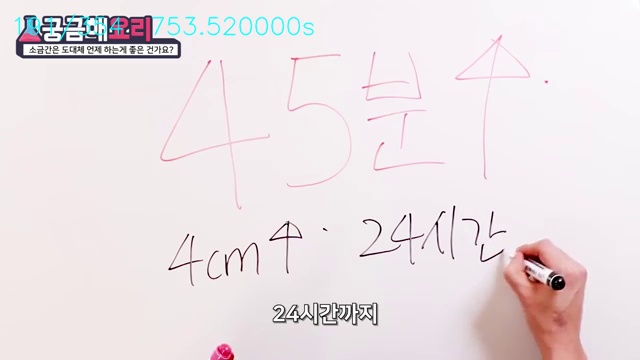 궁금해요리
753.520000s
소금간은 도대체 언제 하는게 좋은 건가요?
45분↑.
4cm↑. 24시간
24시간까지